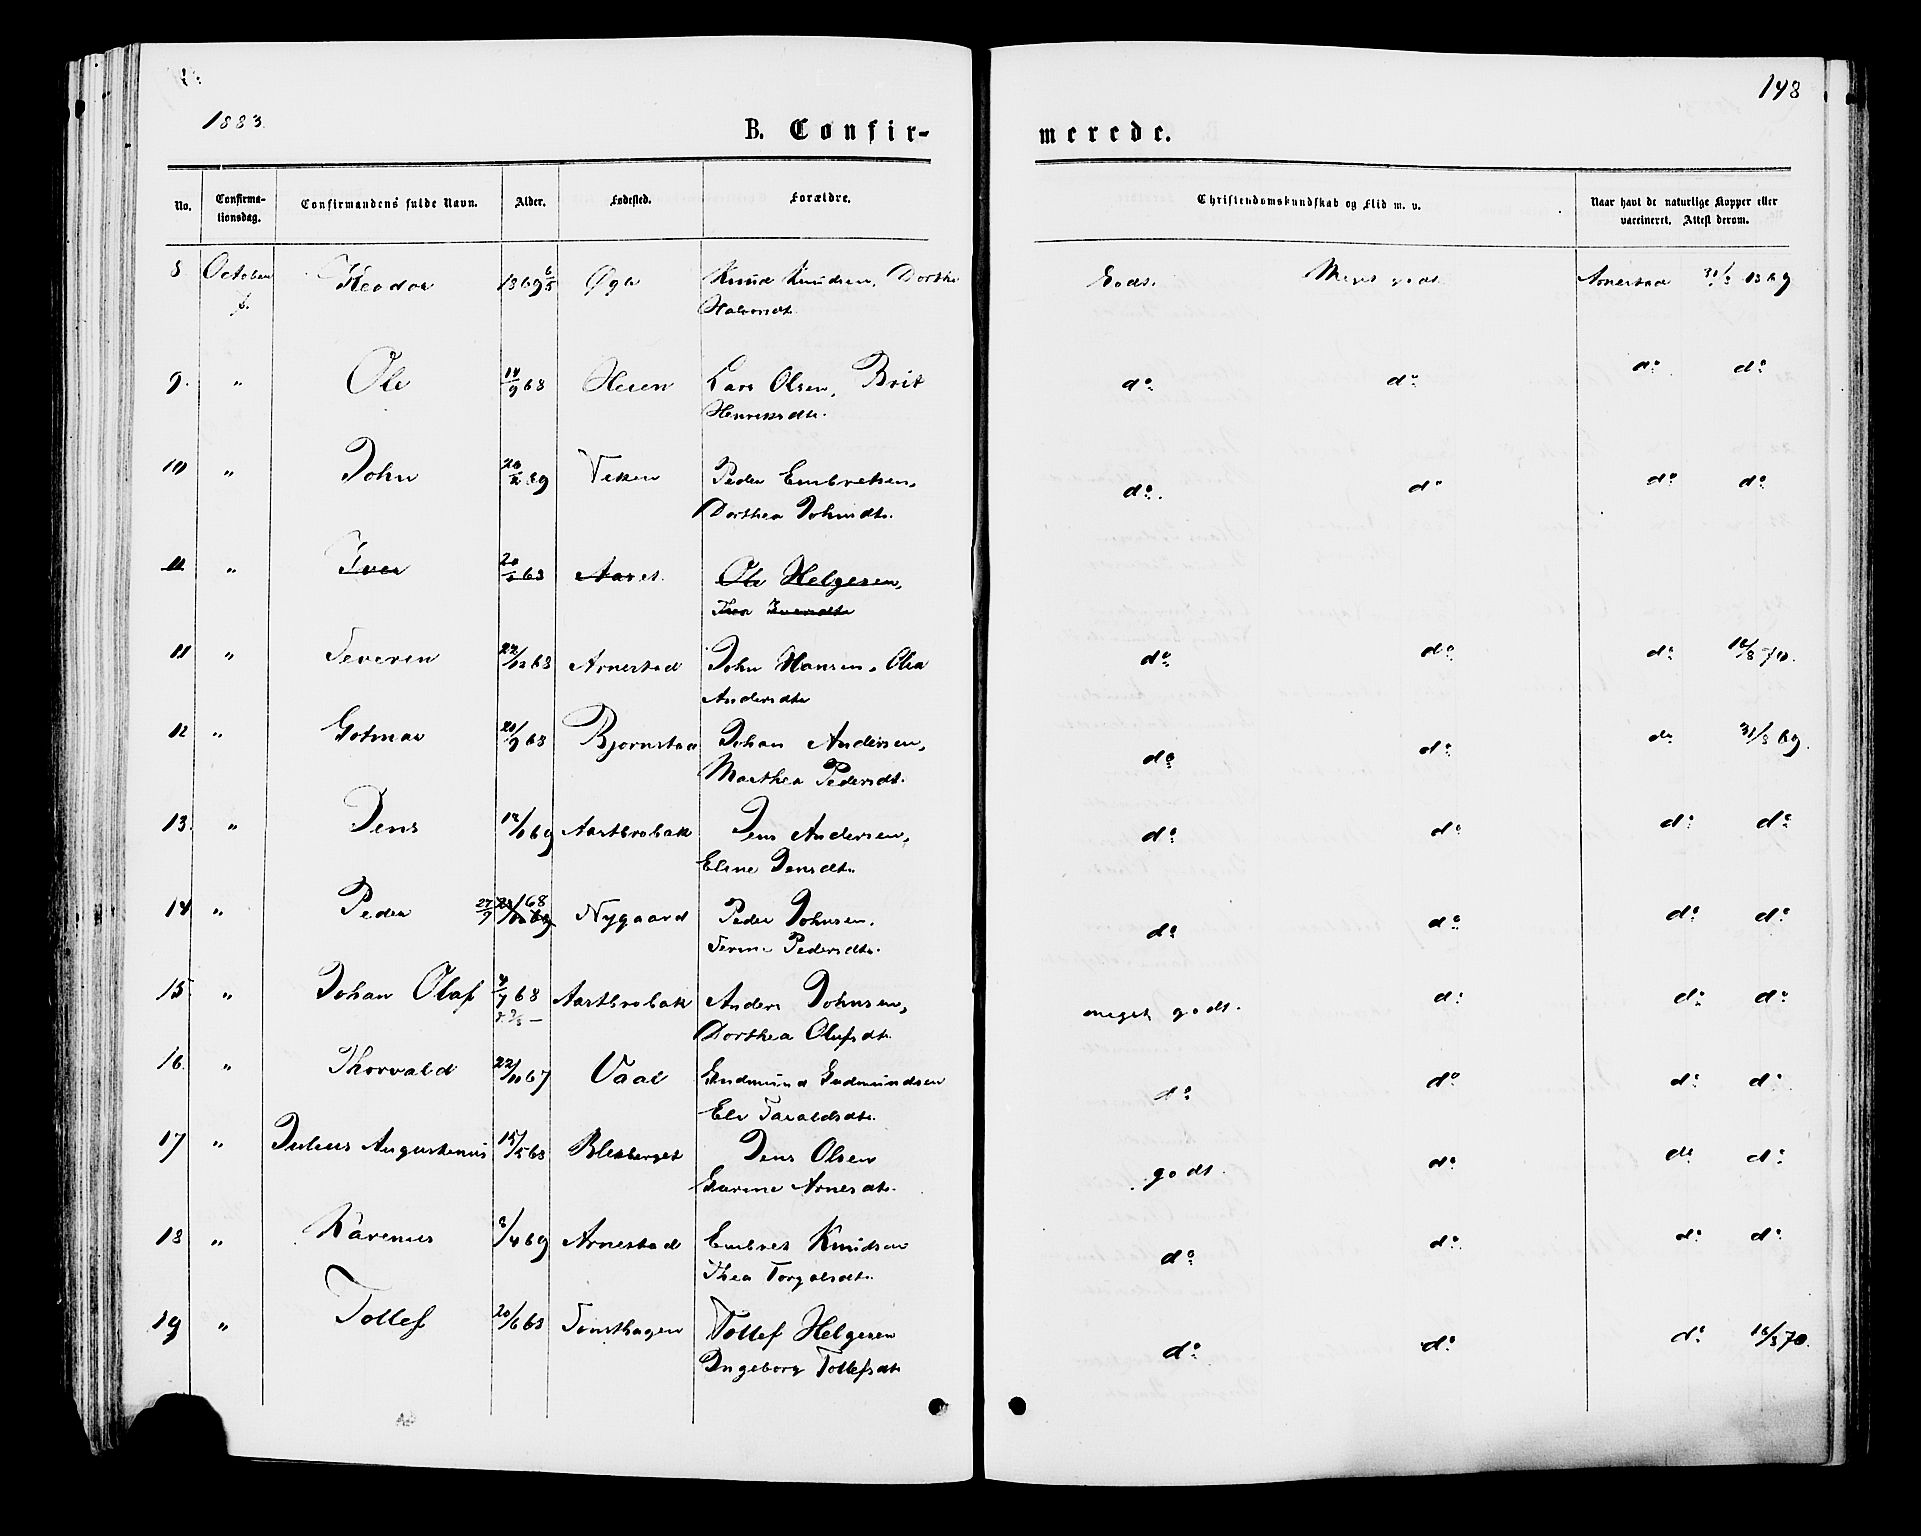 1883.
148
B. Confir-
merede.
No.
Confirma-
tionsdag.
Confirmandens fulde Navn.
Alder.
Fødested.
Forældre.
Christendomskundskab og Flid m. v.
Naar havt de naturlige Kopper eller
vaccineret. Attest derom.
8 October Theodor 1869 6/5 Knud Knudsen, Dorthe Godt. Meget godt Arnestad 31/8 1869
Halvorsdt.
9. " Ole 14/9 68 Lars Olsen, Brit do do do do
Henriksdtr.
10 " John Viken Peder Embretsen, do. do do do
Dorthea Johnsdtr.
11 " Iver Aaset. Ole Helgesen,
Thea Iversdtr
11 " Severin 22/12 68 Arnestad John Hansen, Olea do do do 16/8 70.
Andersdtr
12 " Gotmar 20/9 68 Bjørnstad Johan Andersen, do do do 31/8 69.
Marthea Pedersdtr.
13. " Jens Aastbrobak Jens Andersen, do do do do
Eline Jensdtr.
14 " Peder 27/9 68 Nygaard Peder Johnsen, do do do do
Serine Pedersdtr.
15. " Johan Olaf 4/7 68 Aastbrobak Anders Johnsen, meget godt. do do do
Dorthea Olufsdtr.
16. " Thorvald 22/10 67 Vaal Gudmund Gudmundsen do do do do
Eli Taraldsdtr.
17 " Julius Augustinius 15/5 68 Blekberget Jens Olsen godt. do do do
Karine Arnesdtr.
18 " Karenus 8/4 69 Arnestad Embret Knudsen do do do do
Thea Torgalsdtr.
19 " Tollef 20/6 68 Sorsthagen Tollef Helgesen do do do 16/8 70.
Ingeborg Tollefsdtr